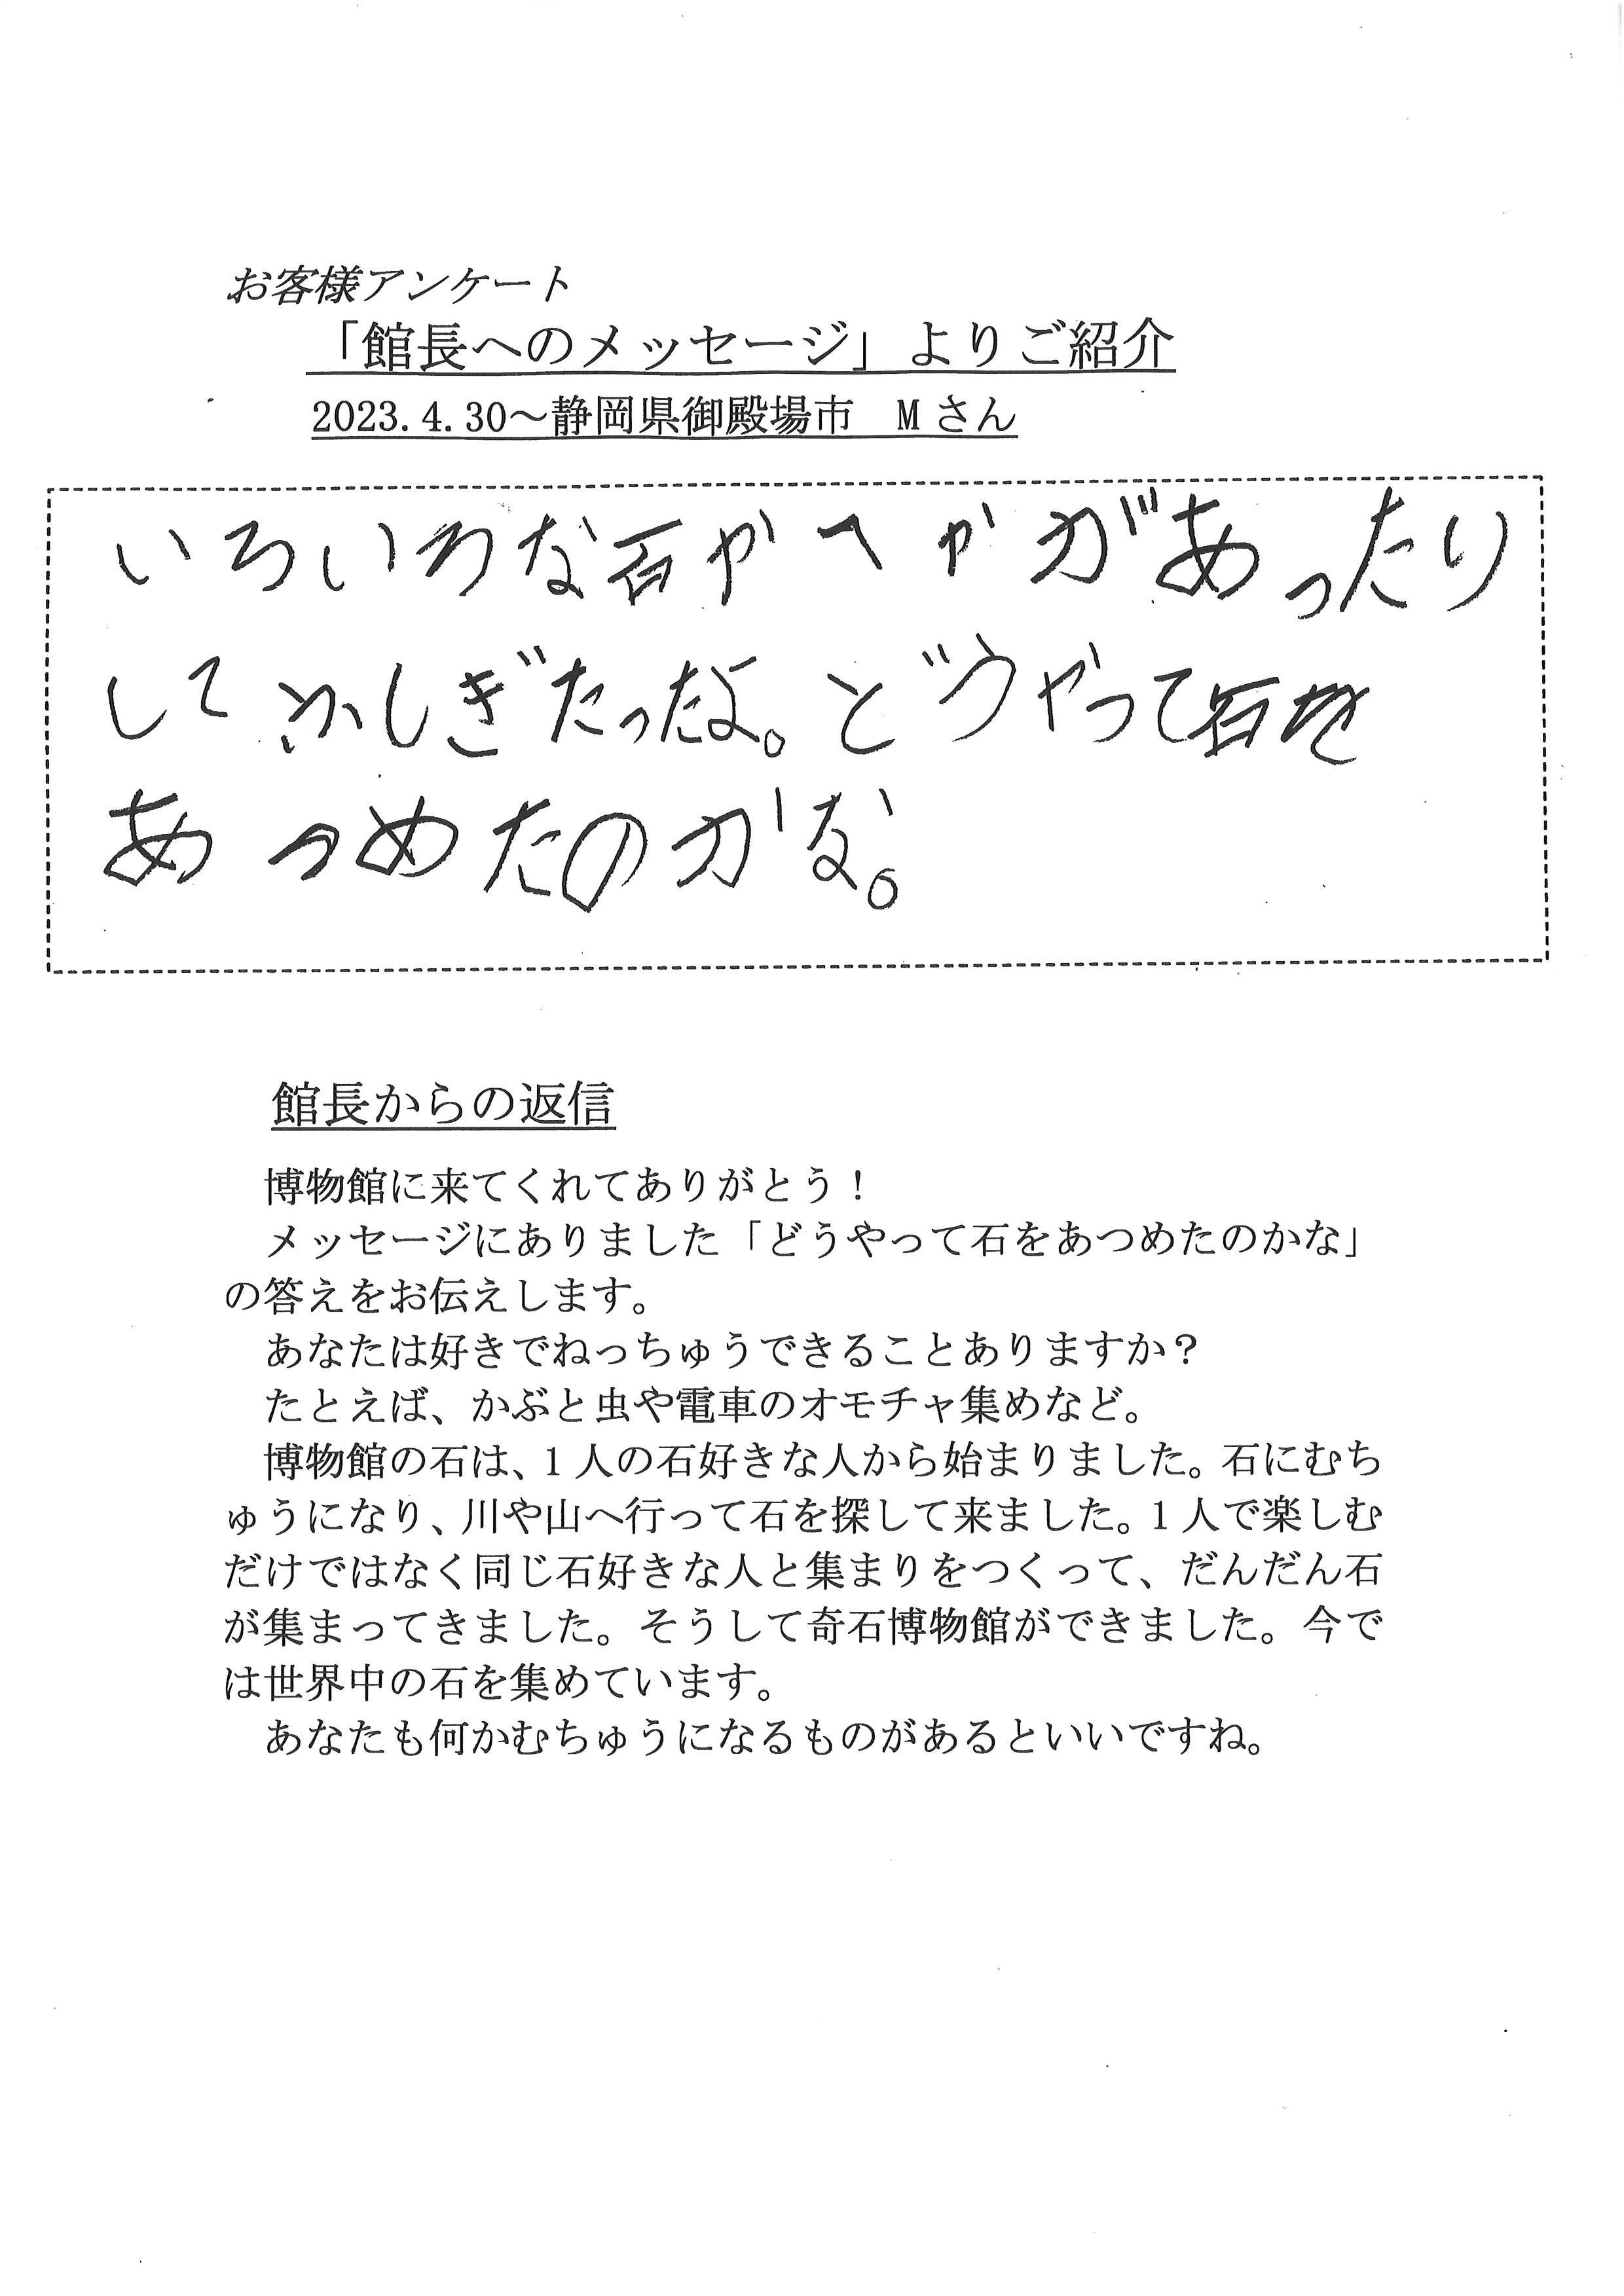 お客様アンケート
「館長へのメッセージ」よりご紹介
2023.4.30～静岡県御殿場市　Mさん
いろいろな石やへやががあったり
してふしぎたったよ。どうやって石を
あつめたのかな。
館長からの返信
博物館に来てくれてありがとう！
メッセージにありました「どうやって石をあつめたのかな」
の答えをお伝えします。
あなたは好きでねっちゅうできることありますか？
たとえば、かぶと虫や電車のオモチャ集めなど。
博物館の石は、1人の石好きな人から始まりました。石にむち
ゅうになり、川や山へ行って石を探して来ました。1人で楽しむ
だけではなく同じ石好きな人と集まりをつくって、だんだん石
が集まってきました。そうして奇石博物館ができました。今で
は世界中の石を集めています。
あなたも何かむちゅうになるものがあるといいですね。